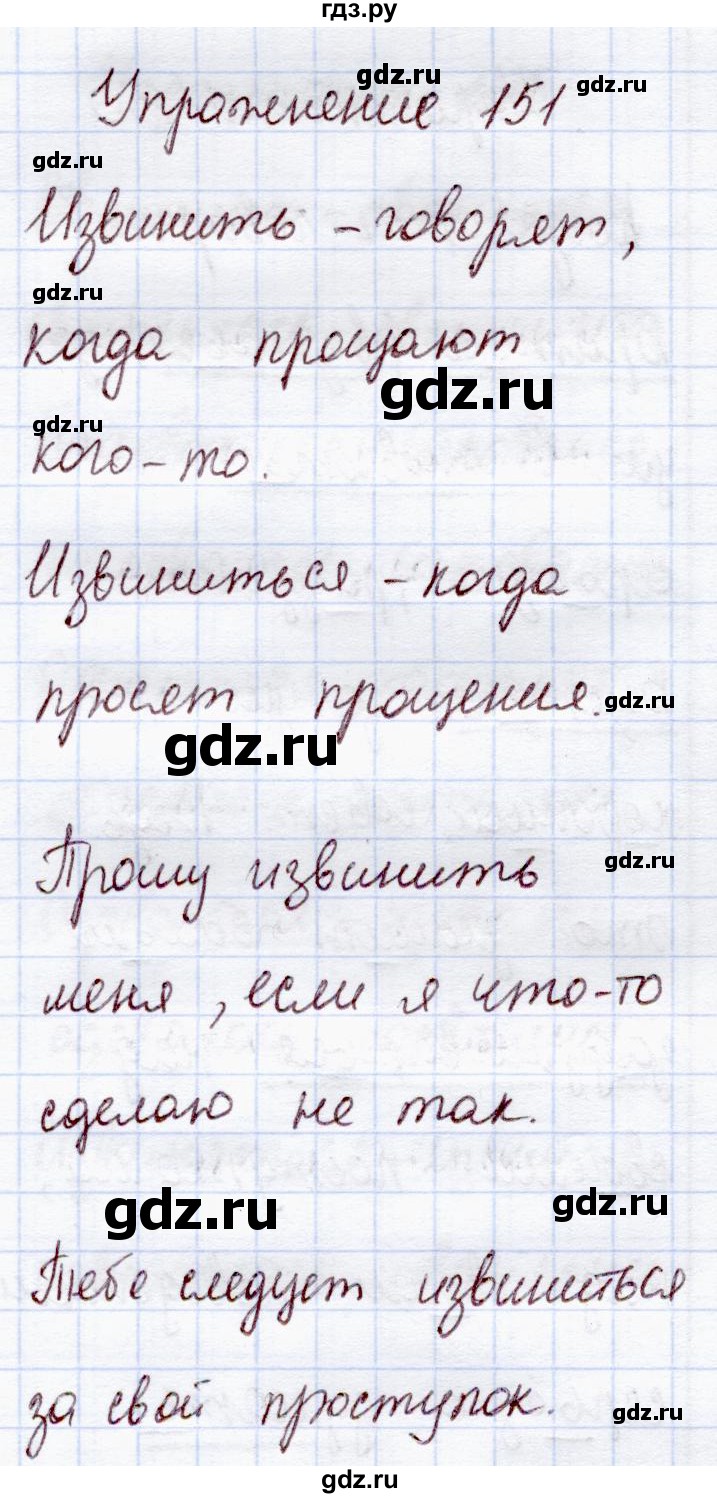 гдз.ру
gdz.ru
gdz.ru
Упражнение 151
gdz.ru
Извинить - говорят,
gdz.ru
когда прощают
gdz.ru
gdz.ru
кого-то.
Извиниться - когда
просят прощения.
gdz.ru
gdz.ru
Прошу извинить
gdz.ru
меня, если я что-то
сделаю не так.
gdz.ru
gdz.ru
Тебе следует извиниться
за свой проступок.
gdz.ru
gdz.ru